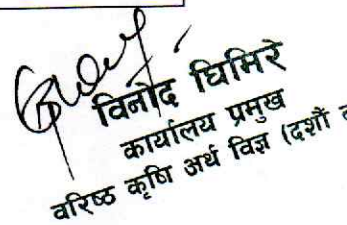 विनोद घिमिरे
कार्यालय प्रमुख
वरिष्ठ कृषि अर्थ विज्ञ (दशौं